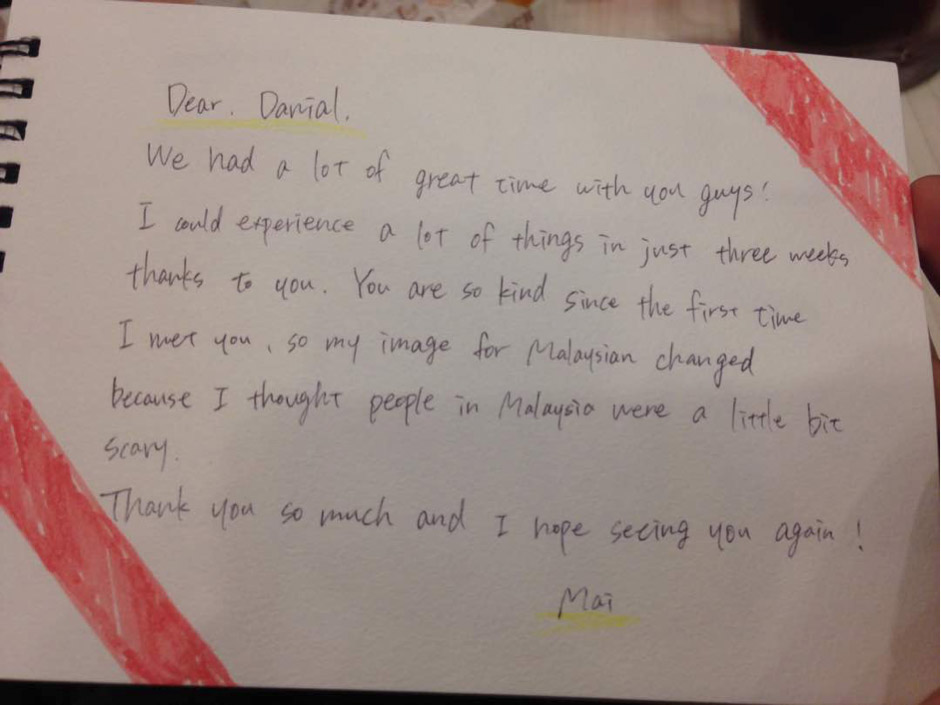 Dear. Danial.
We had a lot of great time with you guys!
I could experience a lot of things in just three weeks
thanks to you. You are so kind since the first time
I met you, so my image for Malaysian changed
because I thought people in Malaysia were a little bit
scary.
Thank you so much and I hope seeing you again!
Mai